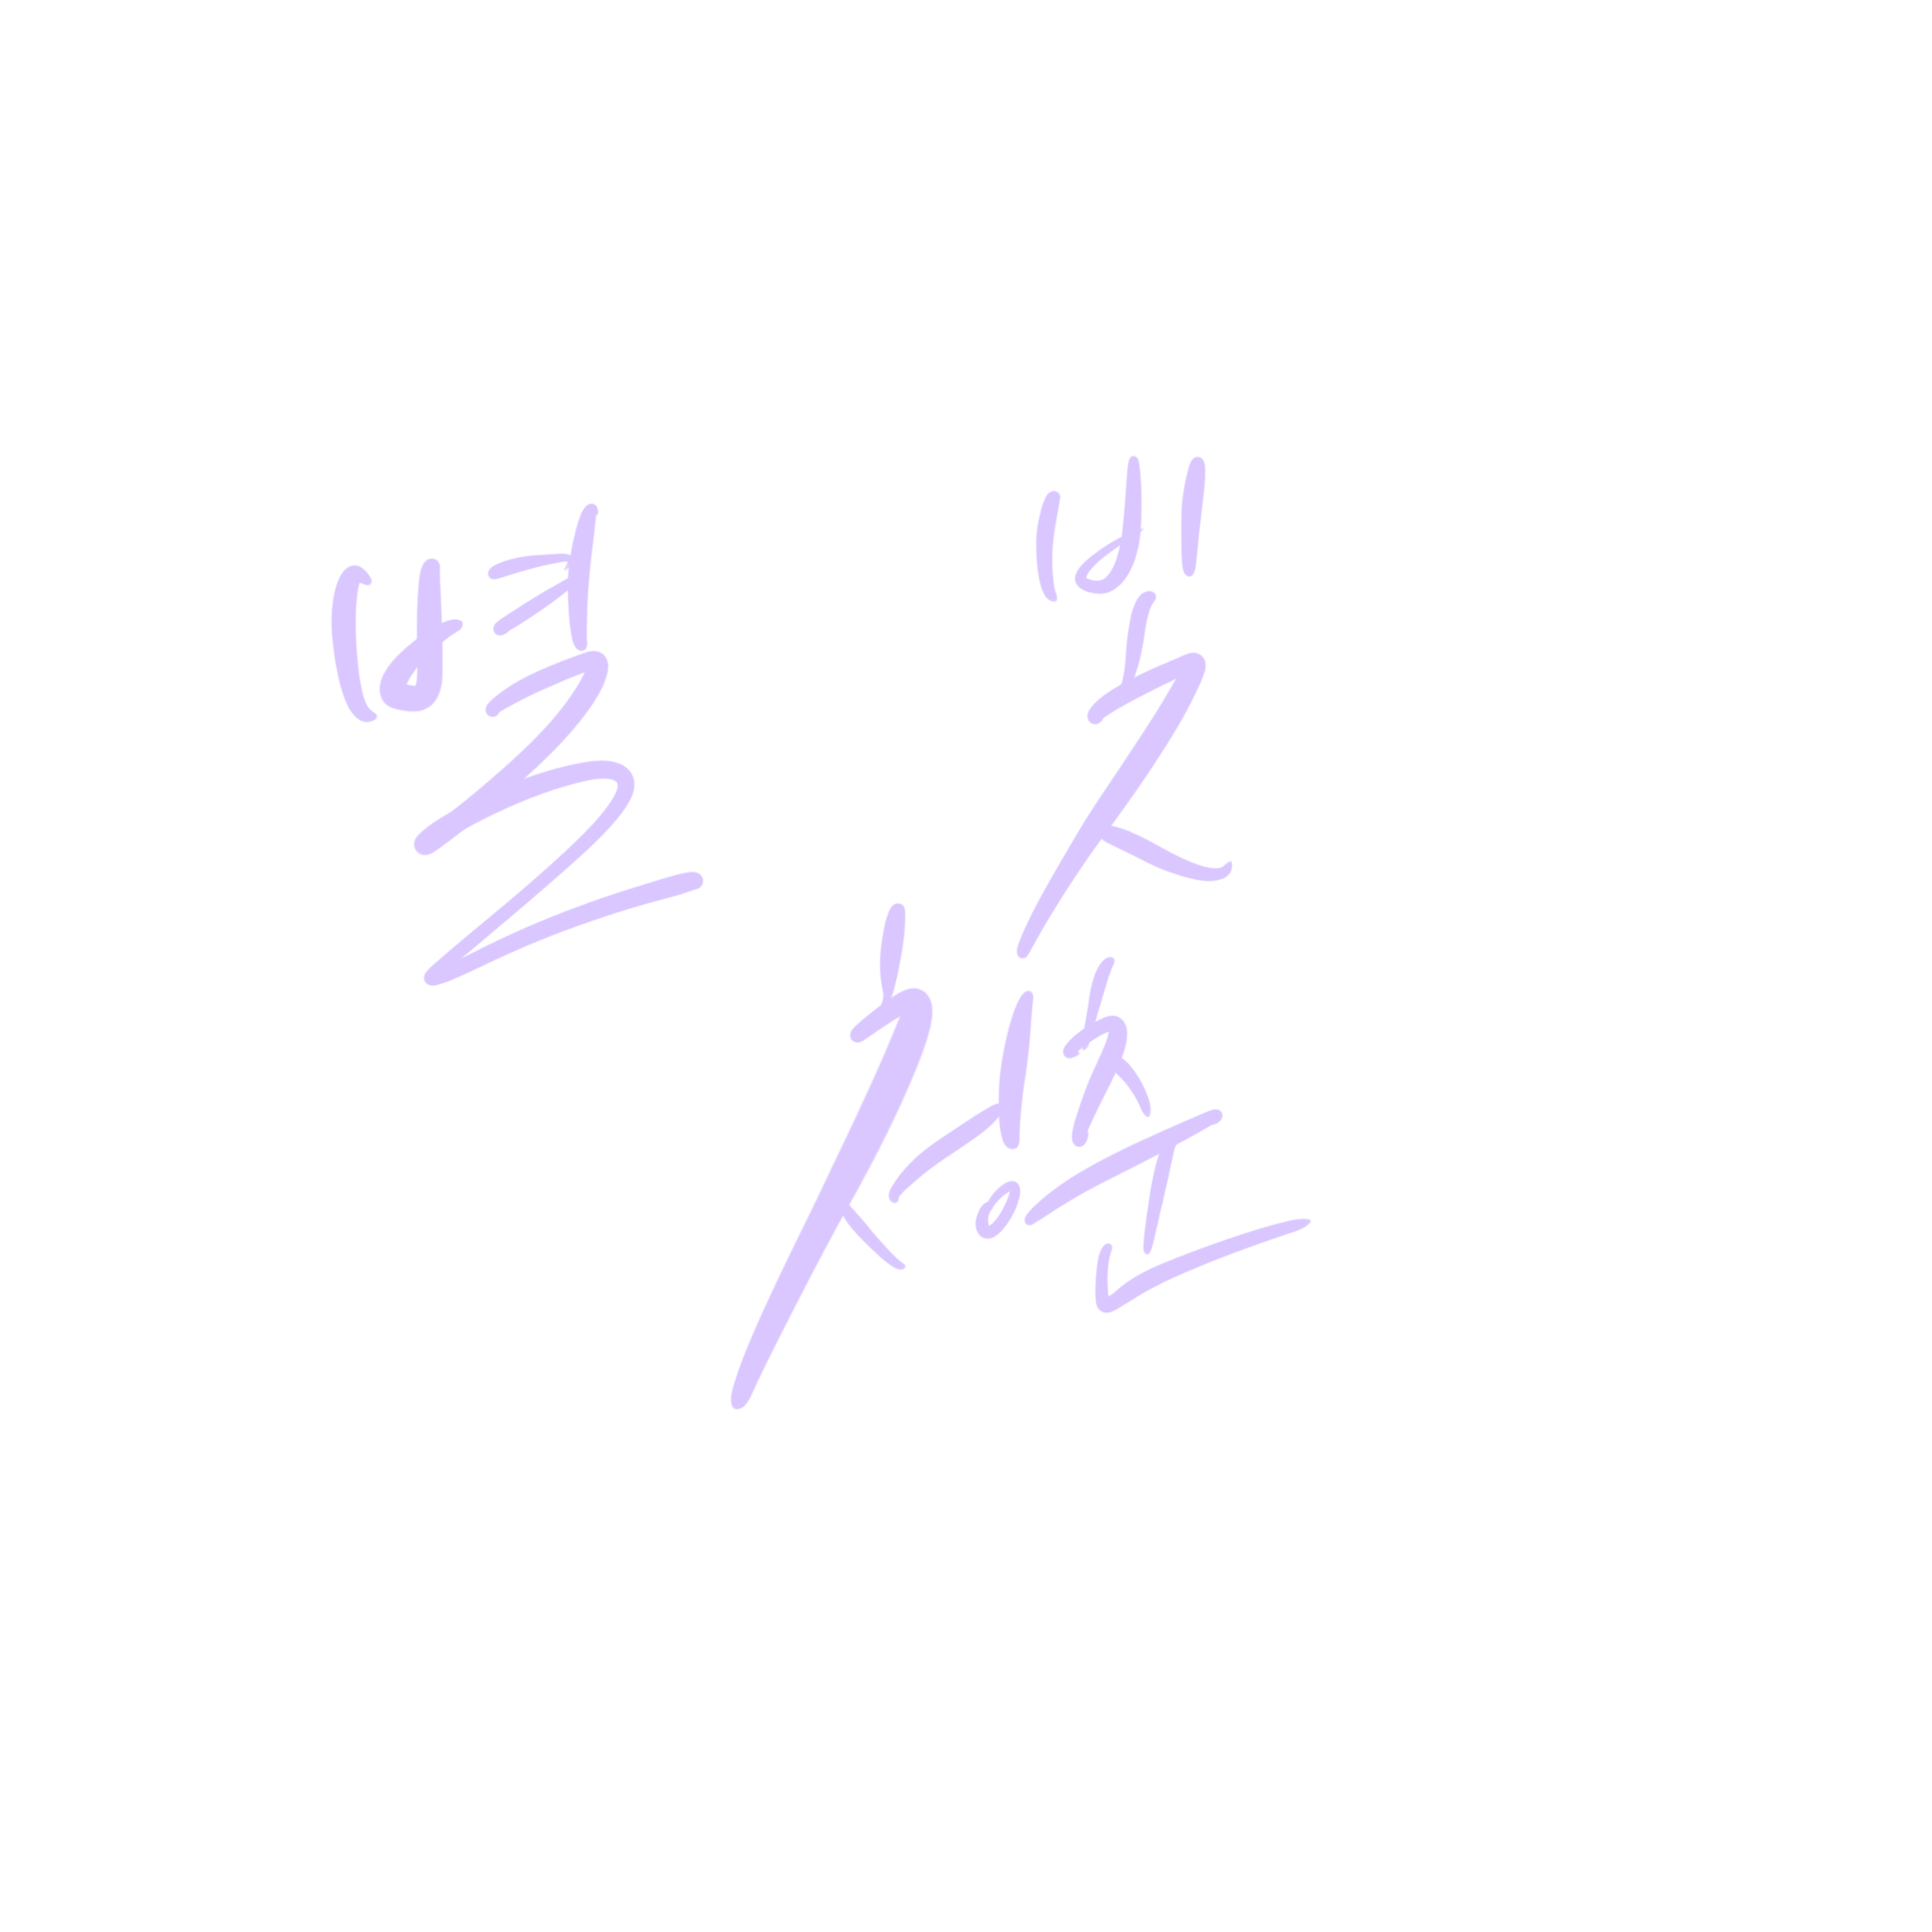 별빛
청춘